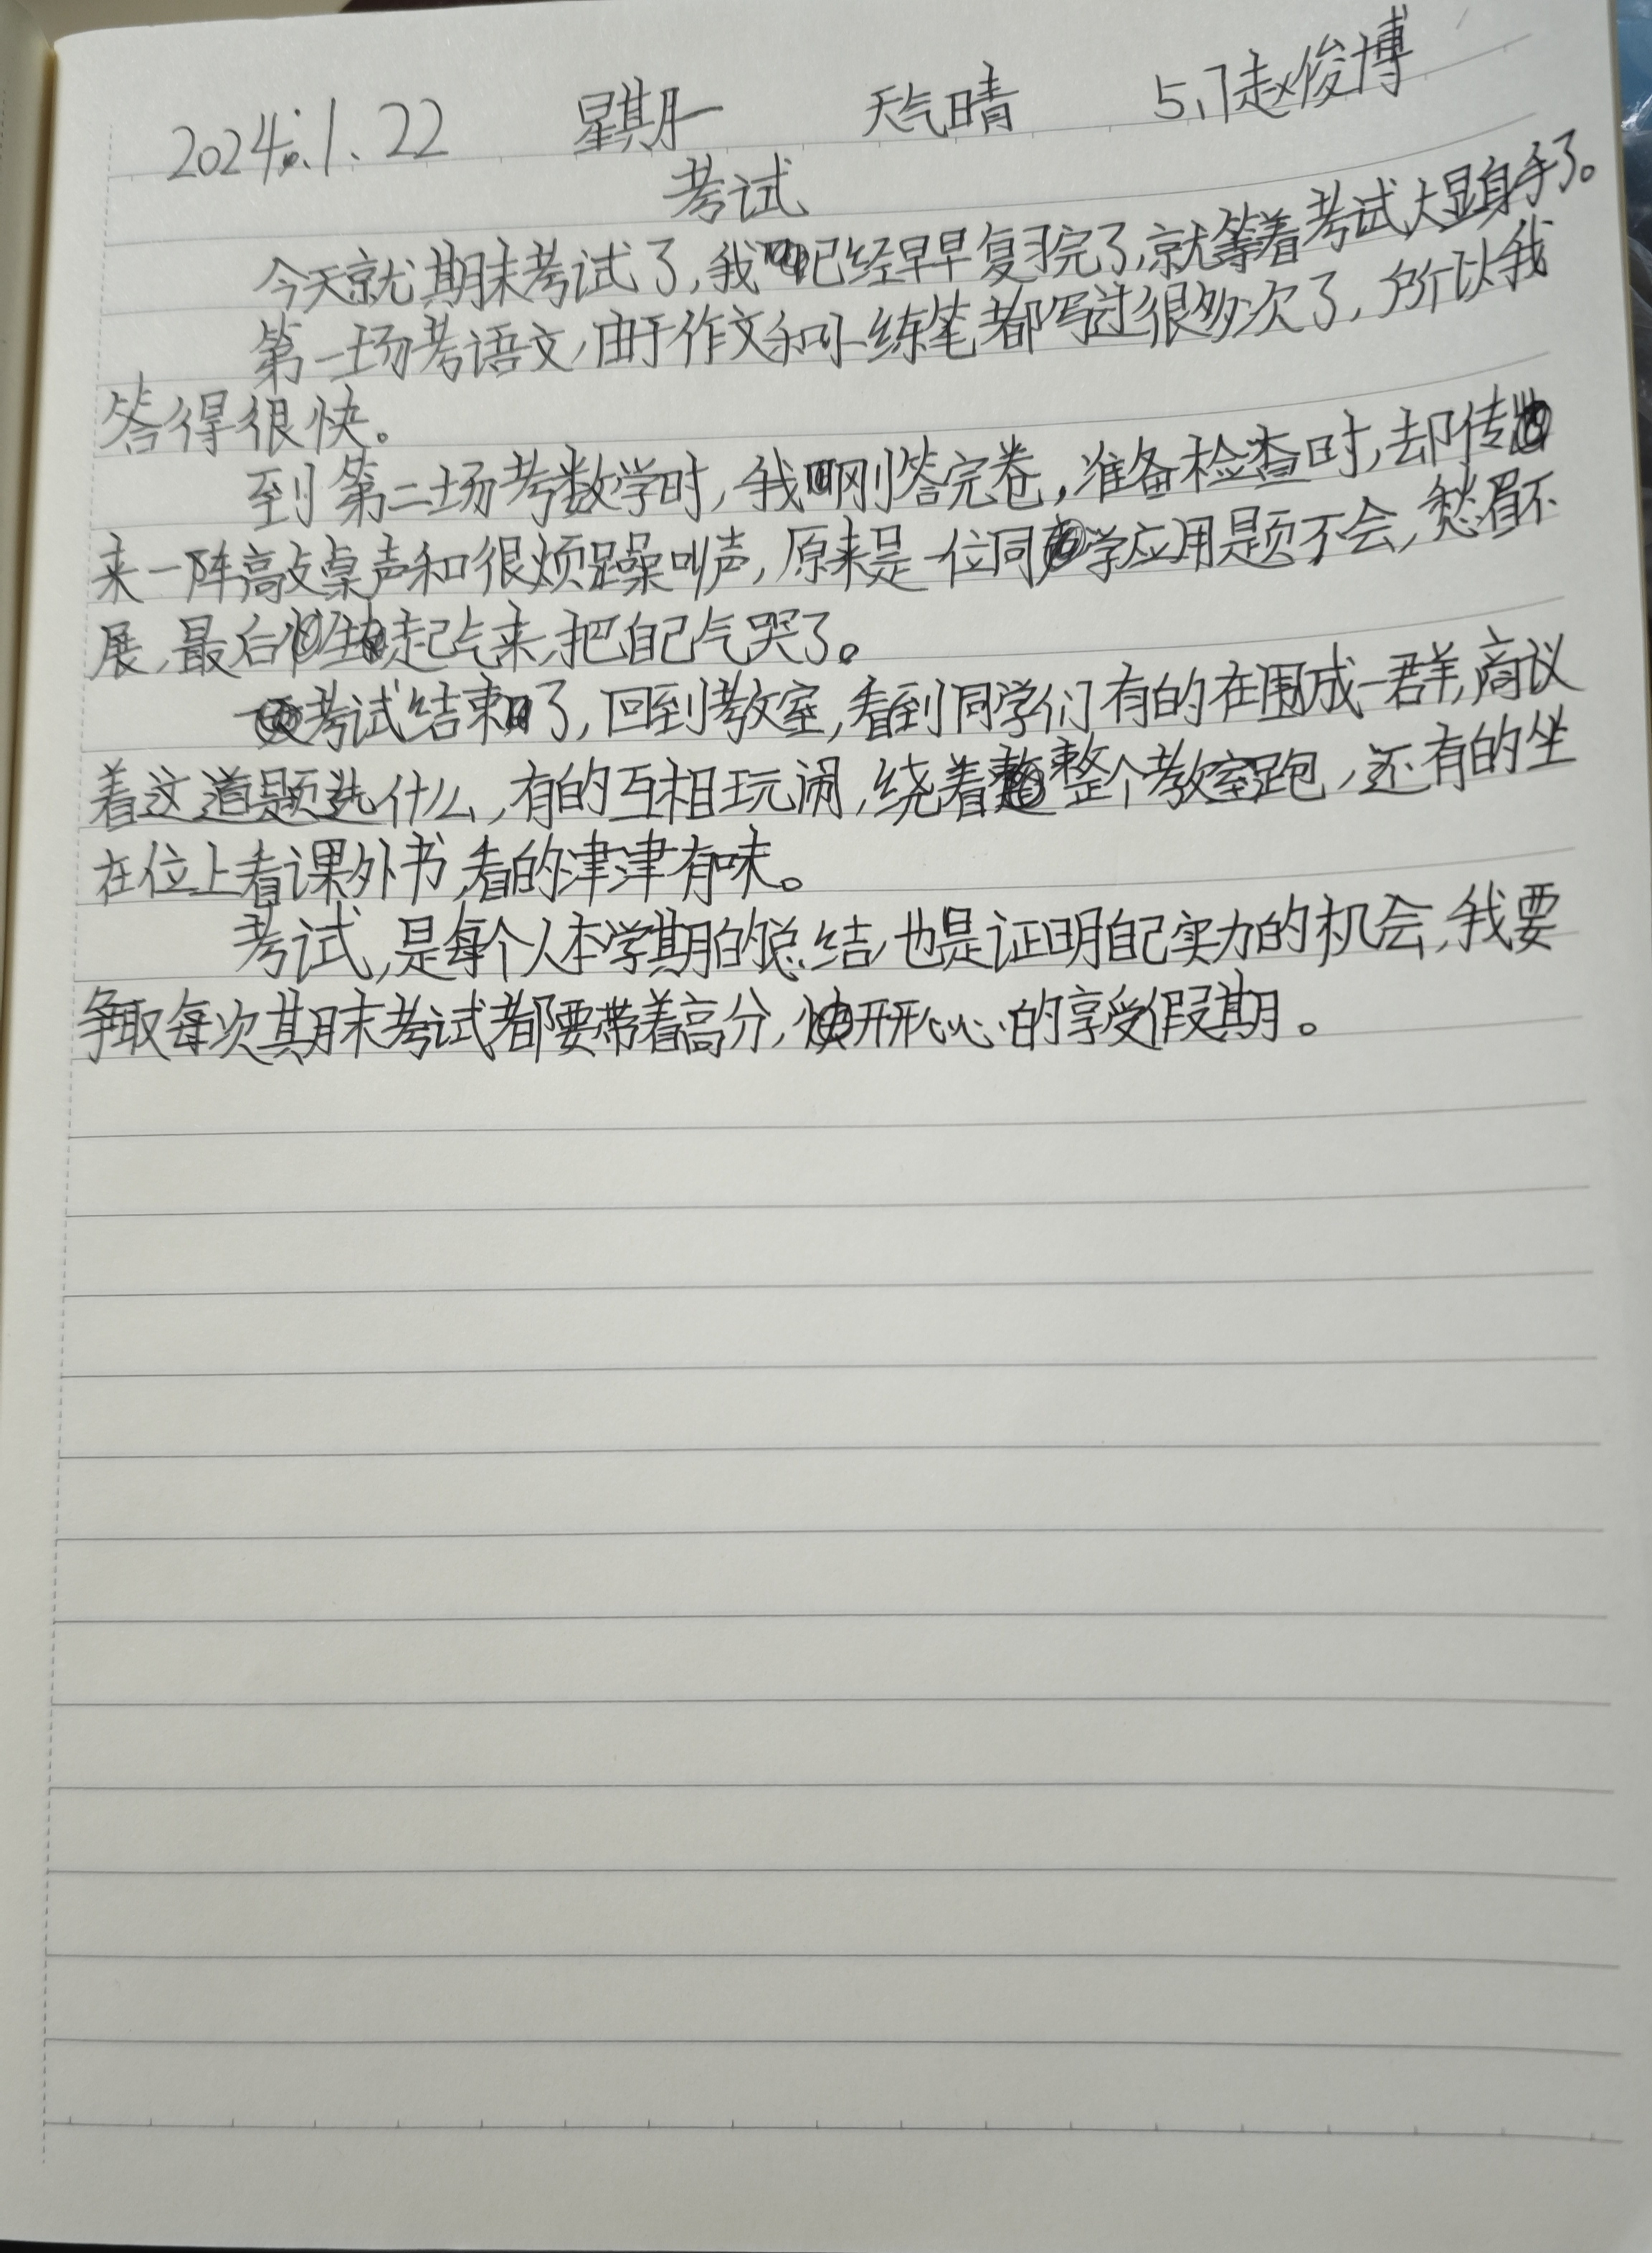 2024.1.22 星期一 天气晴 5.7赵俊博
考试
今天就期末考试了,我已经早早复习完了,就等着考试大显身手了。
第一场考语文,由于作文和小练笔都写过很多次了,所以我
答得很快。
到第二场考数学时,我刚答完卷,准备检查时,却传
来一阵敲桌声和很烦躁叫声,原来是一位同学应用题不会,愁眉不
展,最后生起气来,把自己气哭了。
考试结束了,回到教室,看到同学们有的在围成一群,商议
着这道题选什么,有的互相玩闹,绕着整个教室跑,还有的坐
在位上看课外书,看的津津有味。
考试,是每个人本学期的总结,也是证明自己实力的机会,我要
争取每次期末考试都要带着高分,开开心心的享受假期。